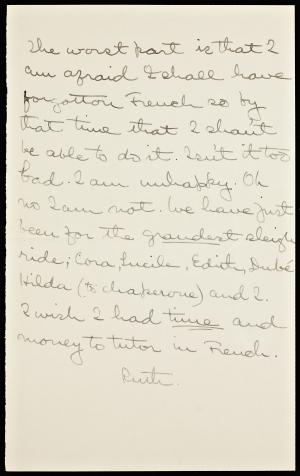 The worst part is that I
am afraid I shall have
forgotton French so by
that time that I shan't
be able to do it. Isn't it too
bad. I am unhappy. Oh
no I am not. We have just
been for the grandest sleigh
ride; Cora, Lucile, Edith, Dubé
Hilda (to chaperone) and I.
I wish I had time and
money to tutor in French.
Ruth.